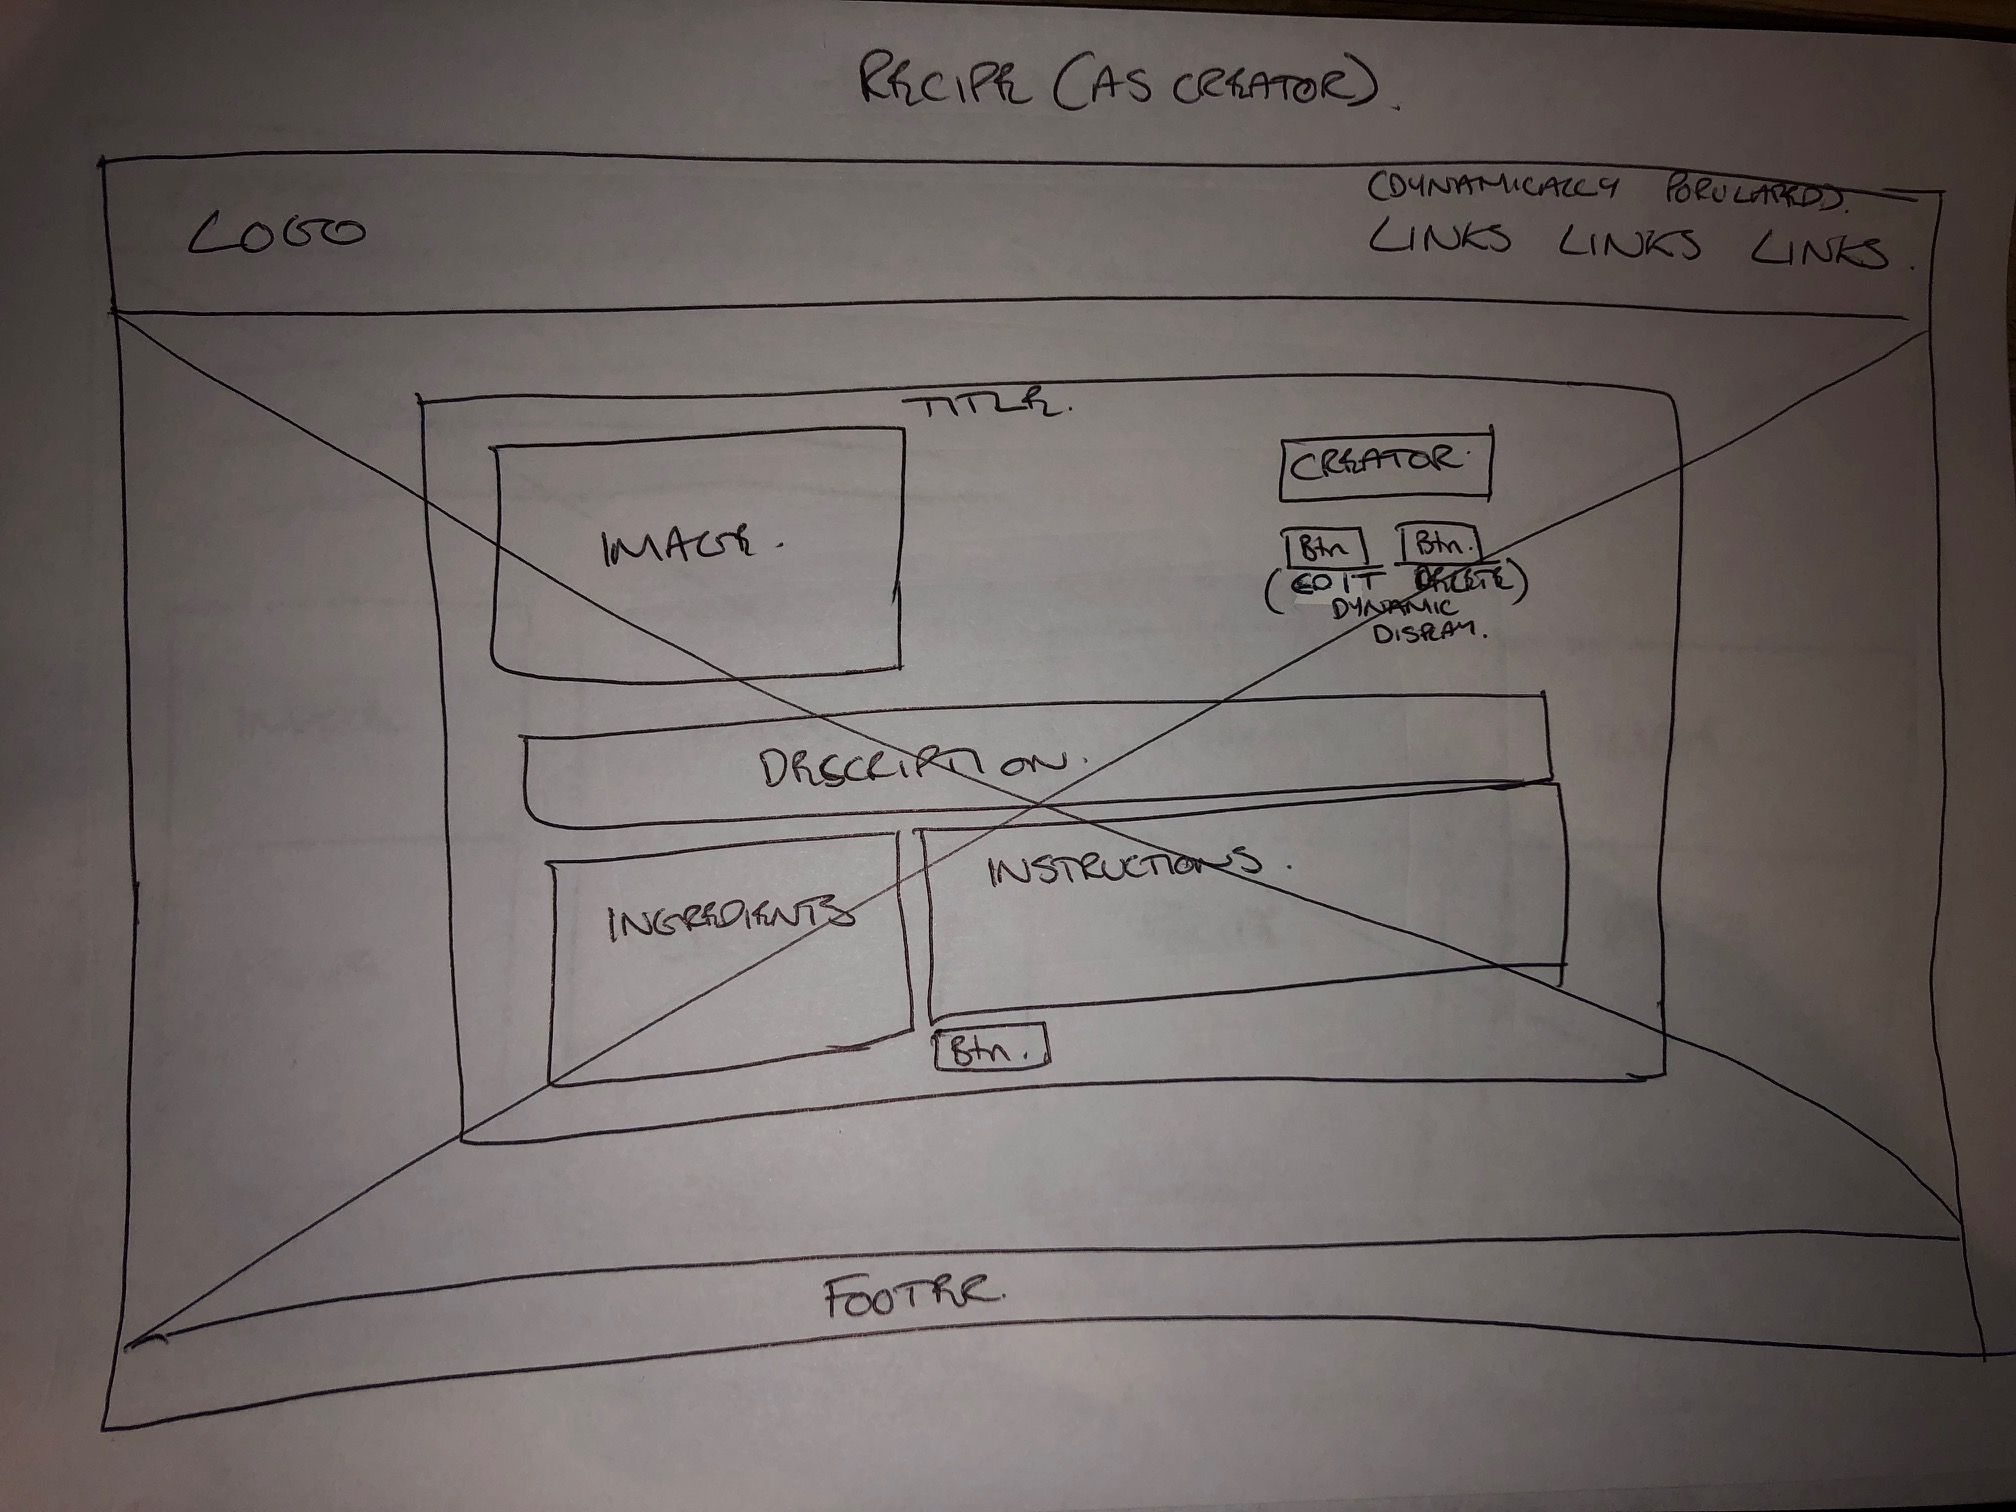 RECIPE (AS CREATOR).
(DYNAMICALLY POPULATED)
LOGO
LINKS LINKS LINKS LINKS.
TITLE.
IMAGE.
CREATOR.
Btn Btn.
(EDIT DELETE)
DYNAMIC
DISPLAY.
DESCRIPTION.
INGREDIENTS
INSTRUCTIONS.
Btn.
FOOTER.